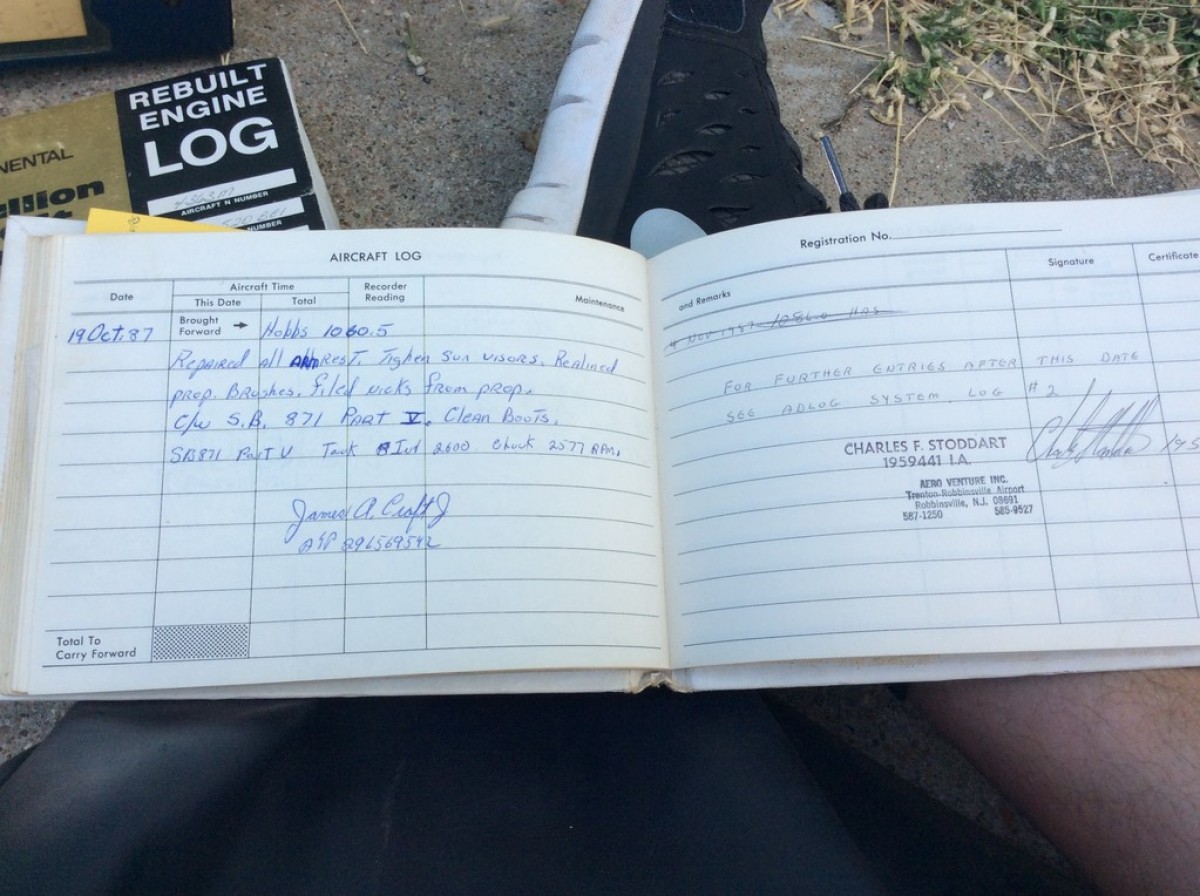 REBUILT
ENGINE
LOG
NENTAL
AIRCRAFT N NUMBER
NUMBER
AIRCRAFT LOG
Date
Aircraft Time
This Date
Total
Recorder
Reading
Maintenance
19 Oct. 87
Brought
Forward
Hobbs 1060.5
Repaired all ARMRest. Tighen Sun visors. Realined
prop. Brushes. Filed nicks from prop.
C/W S.B. 871 PART V. Clean Boots.
SB871 Part V Tack Ind 2600 Chuck 2577 RPM.
James A. Craft Jr
A&P 296569542
Total To
Carry Forward
Registration No.
and Remarks
Signature
Certificate
4 Nov 1987 1086.0 HRS
FOR FURTHER ENTRIES AFTER THIS DATE
SEE ADLOG SYSTEM, LOG #2
CHARLES F. STODDART
1959441 I.A.
AERO VENTURE INC.
Trenton-Robbinsville Airport
Robbinsville, N.J. 08691
587-1250 585-9527